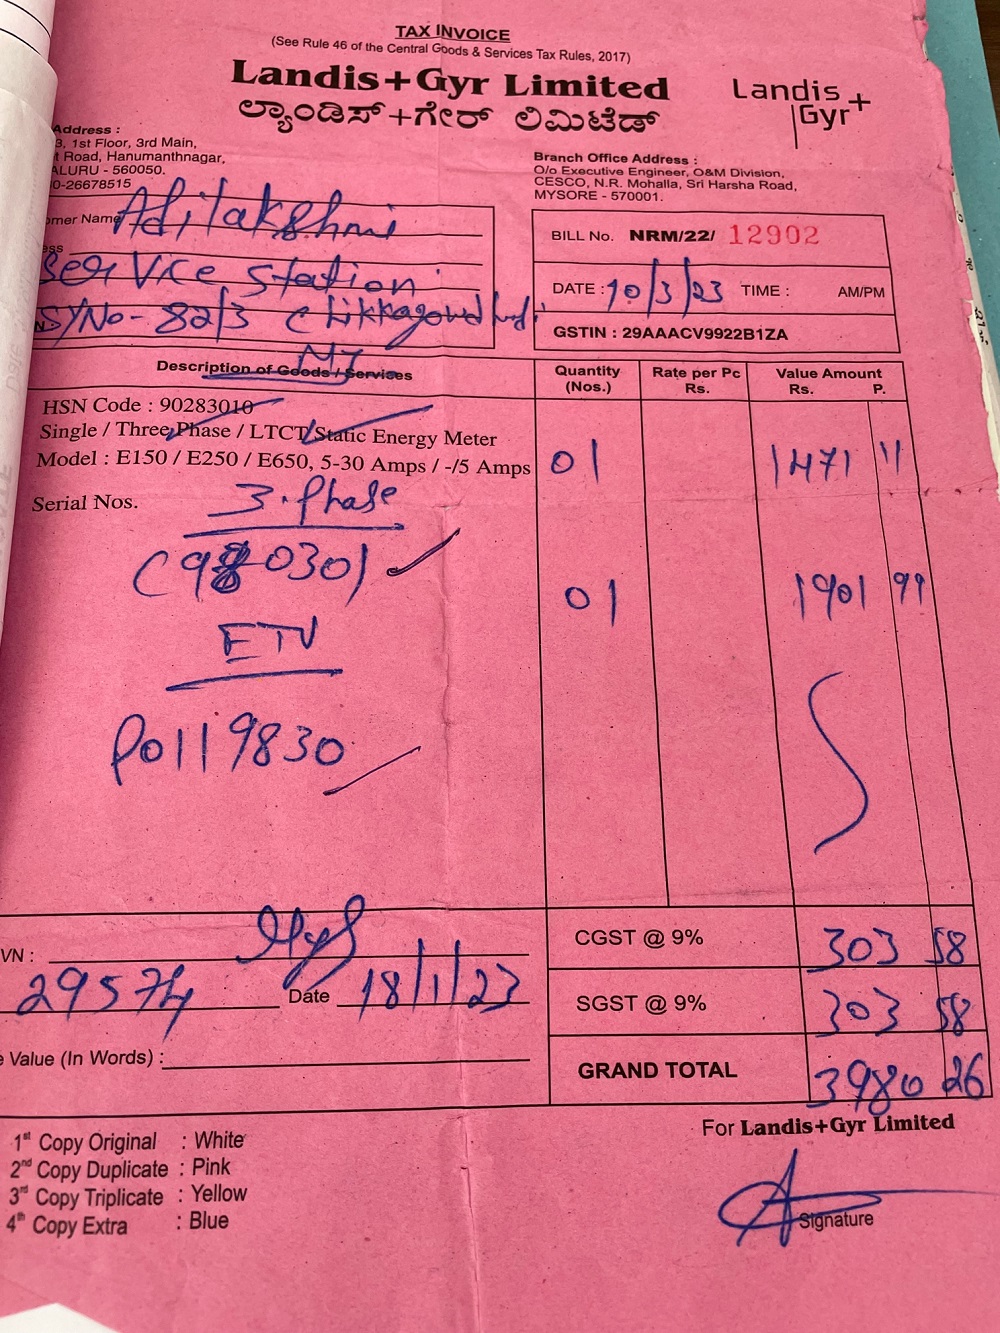 TAX INVOICE
(See Rule 46 of the Central Goods & Services Tax Rules, 2017)
Landis+Gyr Limited
ಲ್ಯಾಂಡಿಸ್ +ಗೇರ್ ಲಿಮಿಟೆಡ್
Landis
Gyr+
Address :
3, 1st Floor, 3rd Main,
t Road, Hanumanthnagar,
ALURU - 560050.
0-26678515
Branch Office Address :
O/o Executive Engineer, O&M Division,
CESCO, N.R. Mohalla, Sri Harsha Road,
MYSORE - 570001.
omer Name Adilakshmi
ess
Service Station
SYNo- 82/3
BILL No. NRM/22/ 12902
DATE : 10/3/23 TIME : AM/PM
GSTIN : 29AAACV9922B1ZA
Description of Goods / Services
Quantity (Nos.)
Rate per Pc Rs.
Value Amount Rs. P.
HSN Code : 90283010
Single / Three Phase / LTCT/Static Energy Meter
Model : E150 / E250 / E650, 5-30 Amps / -/5 Amps 01 1471 11
Serial Nos. 3. Phase
01 1901 99
ETV
P0119830
VN :
CGST @ 9% 303 58
29574 Date 18/1/23
SGST @ 9% 303 58
e Value (In Words) :
GRAND TOTAL 3980 26
For Landis+Gyr Limited
1st Copy Original : White
2nd Copy Duplicate : Pink
3rd Copy Triplicate : Yellow
4th Copy Extra : Blue
Signature